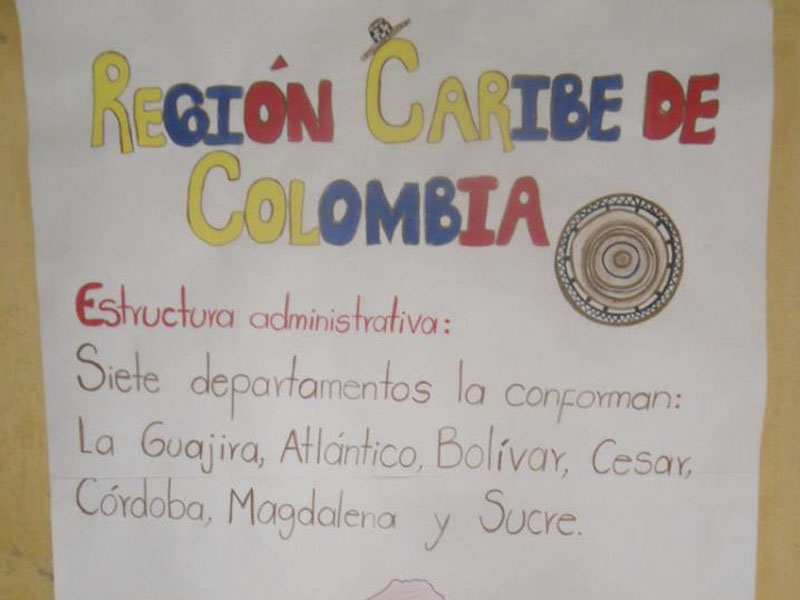 REGIÓN CARIBE DE
COLOMBIA
Estructura administrativa:
Siete departamentos la conforman:
La Guajira, Atlántico, Bolívar, Cesar,
Córdoba, Magdalena y Sucre.